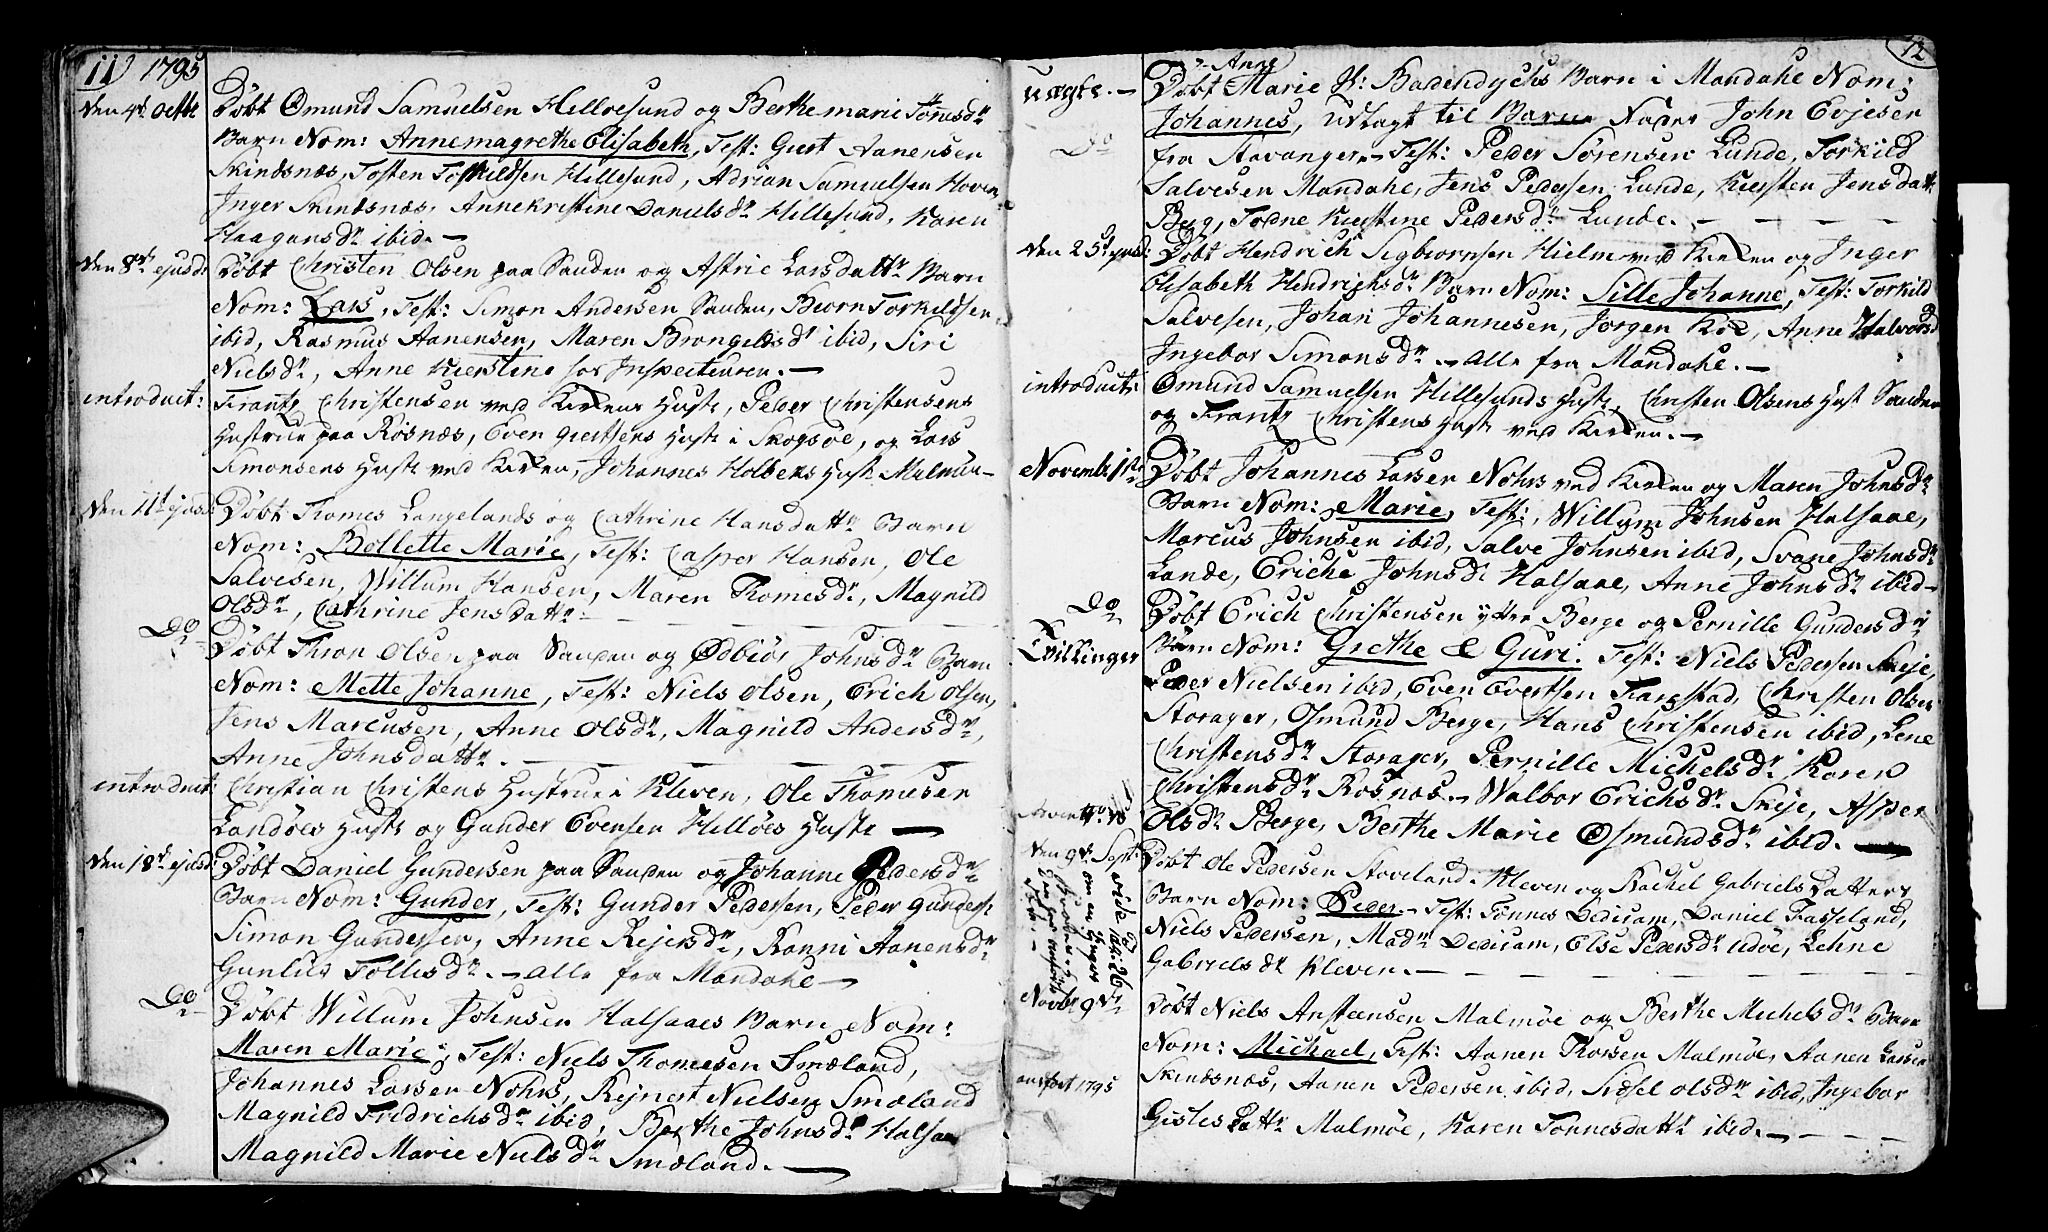 11) 1795
den 4de Octbr Døbt Omund Samuelsen Hillesund og Berthe marie Tønnesdr
Barn Nom: Annemagrethe Elisabeth, Test: Giert Aanensen
Skindsnæs, Tosten Toskildsen Hillesund, Adrian Samuelsen Hoven,
Inger Skindsnæs, Annekristine Danielsdr Hillesund, Karen
Haagansdr ibid. —
den 8de ejusd: Døbt Christen Olsen paa Sanden og Astrie Larsdattr Barn
Nom: Lars, Test: Simon Andersen Sanden, Biørn Torkildsen
ibid, Rasmus Aanensen, Maren Brongelsdr ibid, Siri
Nielsdr, Anne Kierstine hos Inspecteuren. —
introduct: Frantz Christensen ved Kirken Hustr, Peder Christensens
Hustrue paa Rosnæs, Even giertsens Hustr i Skogsøe, og Lars
Simonsens Hustr ved Kirken, Johannes Holbeks Hustr Malmøe —
den 11t ejusd: Døbt Thomes Langelands og Cathrine Hansdattr Barn
Nom: Bollette Marie, Test: Casper Hansen, Ole
Salvesen, Willum Hansen, Maren Thomesdr, Magnild
Olsdr, Cathrine Jensdattr —
Do Døbt Thron Olsen paa Sanden og Ødbiør Johnsdr Barn
Nom: Mette Johanne, Test: Niels Olsen, Erich Olsen,
Jens Marcusen, Anne Olsdr, Magnild Andersdr,
Anne Johnsdattr. —
introduct: Christian Christens Hustrue i Kleven, Ole Thomesen
Landøes Hustr og Gunder Evensen Hilløes Hustr —
den 18de ejusd: Døbt Daniel Gundersen paa Sanden og Johanne Pedersdr
Barn Nom: Gunder, Test: Gunder Pedersen, Peder Gunders:
Simon Gundersen, Anne Rejersdr, Ranni Aanensdr
Gunlue Follesdr. — alle fra Mandahl —
Do Døbt Willum Johnsen Halsaaes Barn Nom:
Maren Marie; Test: Niels Thomesen Smæland,
Johannes Larsen Nohrs, Rejnert Nielsen Smæland
Magnild Fridrichsdr ibid, Berthe Johnsdr Halsaa
Magnild Marie Nielsdr Smæland. —
12
uægte. — Døbt Anne Marie Baadendychs Barn i Mandahl Nom:
Johannes, udlagt til Barne Fader John Evjesen
Do fra Stavanger — Test: Peder Sørensen Lunde, Torkild
Salvesen Mandahl, Jens Pedersen Lunde, Kiersten Jensdattr
Berg, Torne Kierstine Pedersdr Lunde. —
den 25de ejusd: Døbt Hendrich Sigbiørnsen Hielm ved Kirken og Inger
Elisabeth Hendrichsdr Barn Nom: Sille Johanne, Test: Torkild
Salvesen, Johan Johannesen, Jørgen Koe, Anne Halvorsd
Ingebor Simonsdr — alle fra Mandahl. —
introduct: Omund Samuelsen Hillesunds Hustr, Christen Olsens Hust Sanden
og Frantz Christens Hustr ved Kirken. —
Novembr 1ste Døbt Johannes Larsen Nohrs ved Kirken og Maren Johnsdr
Barn Nom: Marie, Test: Willum Johnsen Halsaae,
Marcus Johnsen ibid, Salve Johnsen ibid, Svane Johnsdr
Lande, Eriche Johnsdr Halsaae, Anne Johnsdr ibid —
Do Døbt Erich Christensen yttre Berge og Pernille Gundersdr
Tvillinger Børn Nom: Grethe & Guri. Test: Niels Pedersen Skeje,
Peder Nielsen ibid, Even Evertsen Farestad, Christen Olsen
Storager, Osmund Berge, Hans Christensen ibid, Lene
Christensdr Storager, Pernille Michelsdr Karen
Christensdr Rosnæs — Walbor Erichsdr Skeje, Asper
Olsdr Berge, Berthe Marie Osmundsdr ibid. —
vide pag: 26
om en Hugor
den 9de Sept: Døbt Ole Pedersen Stoveland Kleven og Rachel Gabriels Datters
Barn Nom: Peder — Test: Tønnes Dedicam, Daniel Fasseland,
Niels Pedersen, Madm Dedicam, Else Pedersdr Udøe, Lehne
Gabrielsdr Kleven. —
Novbr 9de Døbt Niels Anstensen Malmøe og Berthe Michelsdr Barn
Nom: Michael, Test: Aanen Thorsen Malmøe, Aanen Larsen
anført 1795 Skindsnæs, Aanen Pedersen ibid, Sidsel Olsdr ibid, Ingebor
Gislesdattr Malmøe, Karen Tønnesdattr ibid. —